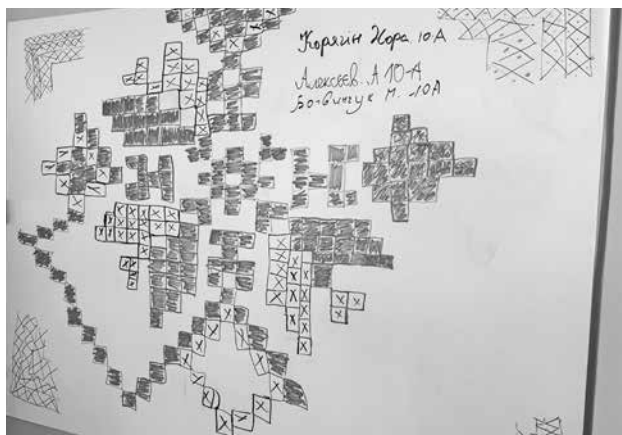 Корягин Юора 10А
Алексеев. А 10-А
Бо-Винчук М. -10А